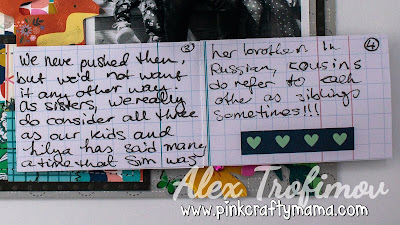 ③
We have pushed them,
but we'd not want
it any other way.
As sisters, we really
do consider all three
as our kids and
Lilya has said many
a time that Sim was
④
her brother. In
Russian, cousins
do refer to each
other as siblings
sometimes!!!
Alex Trofimov
www.pinkcraftymama.com